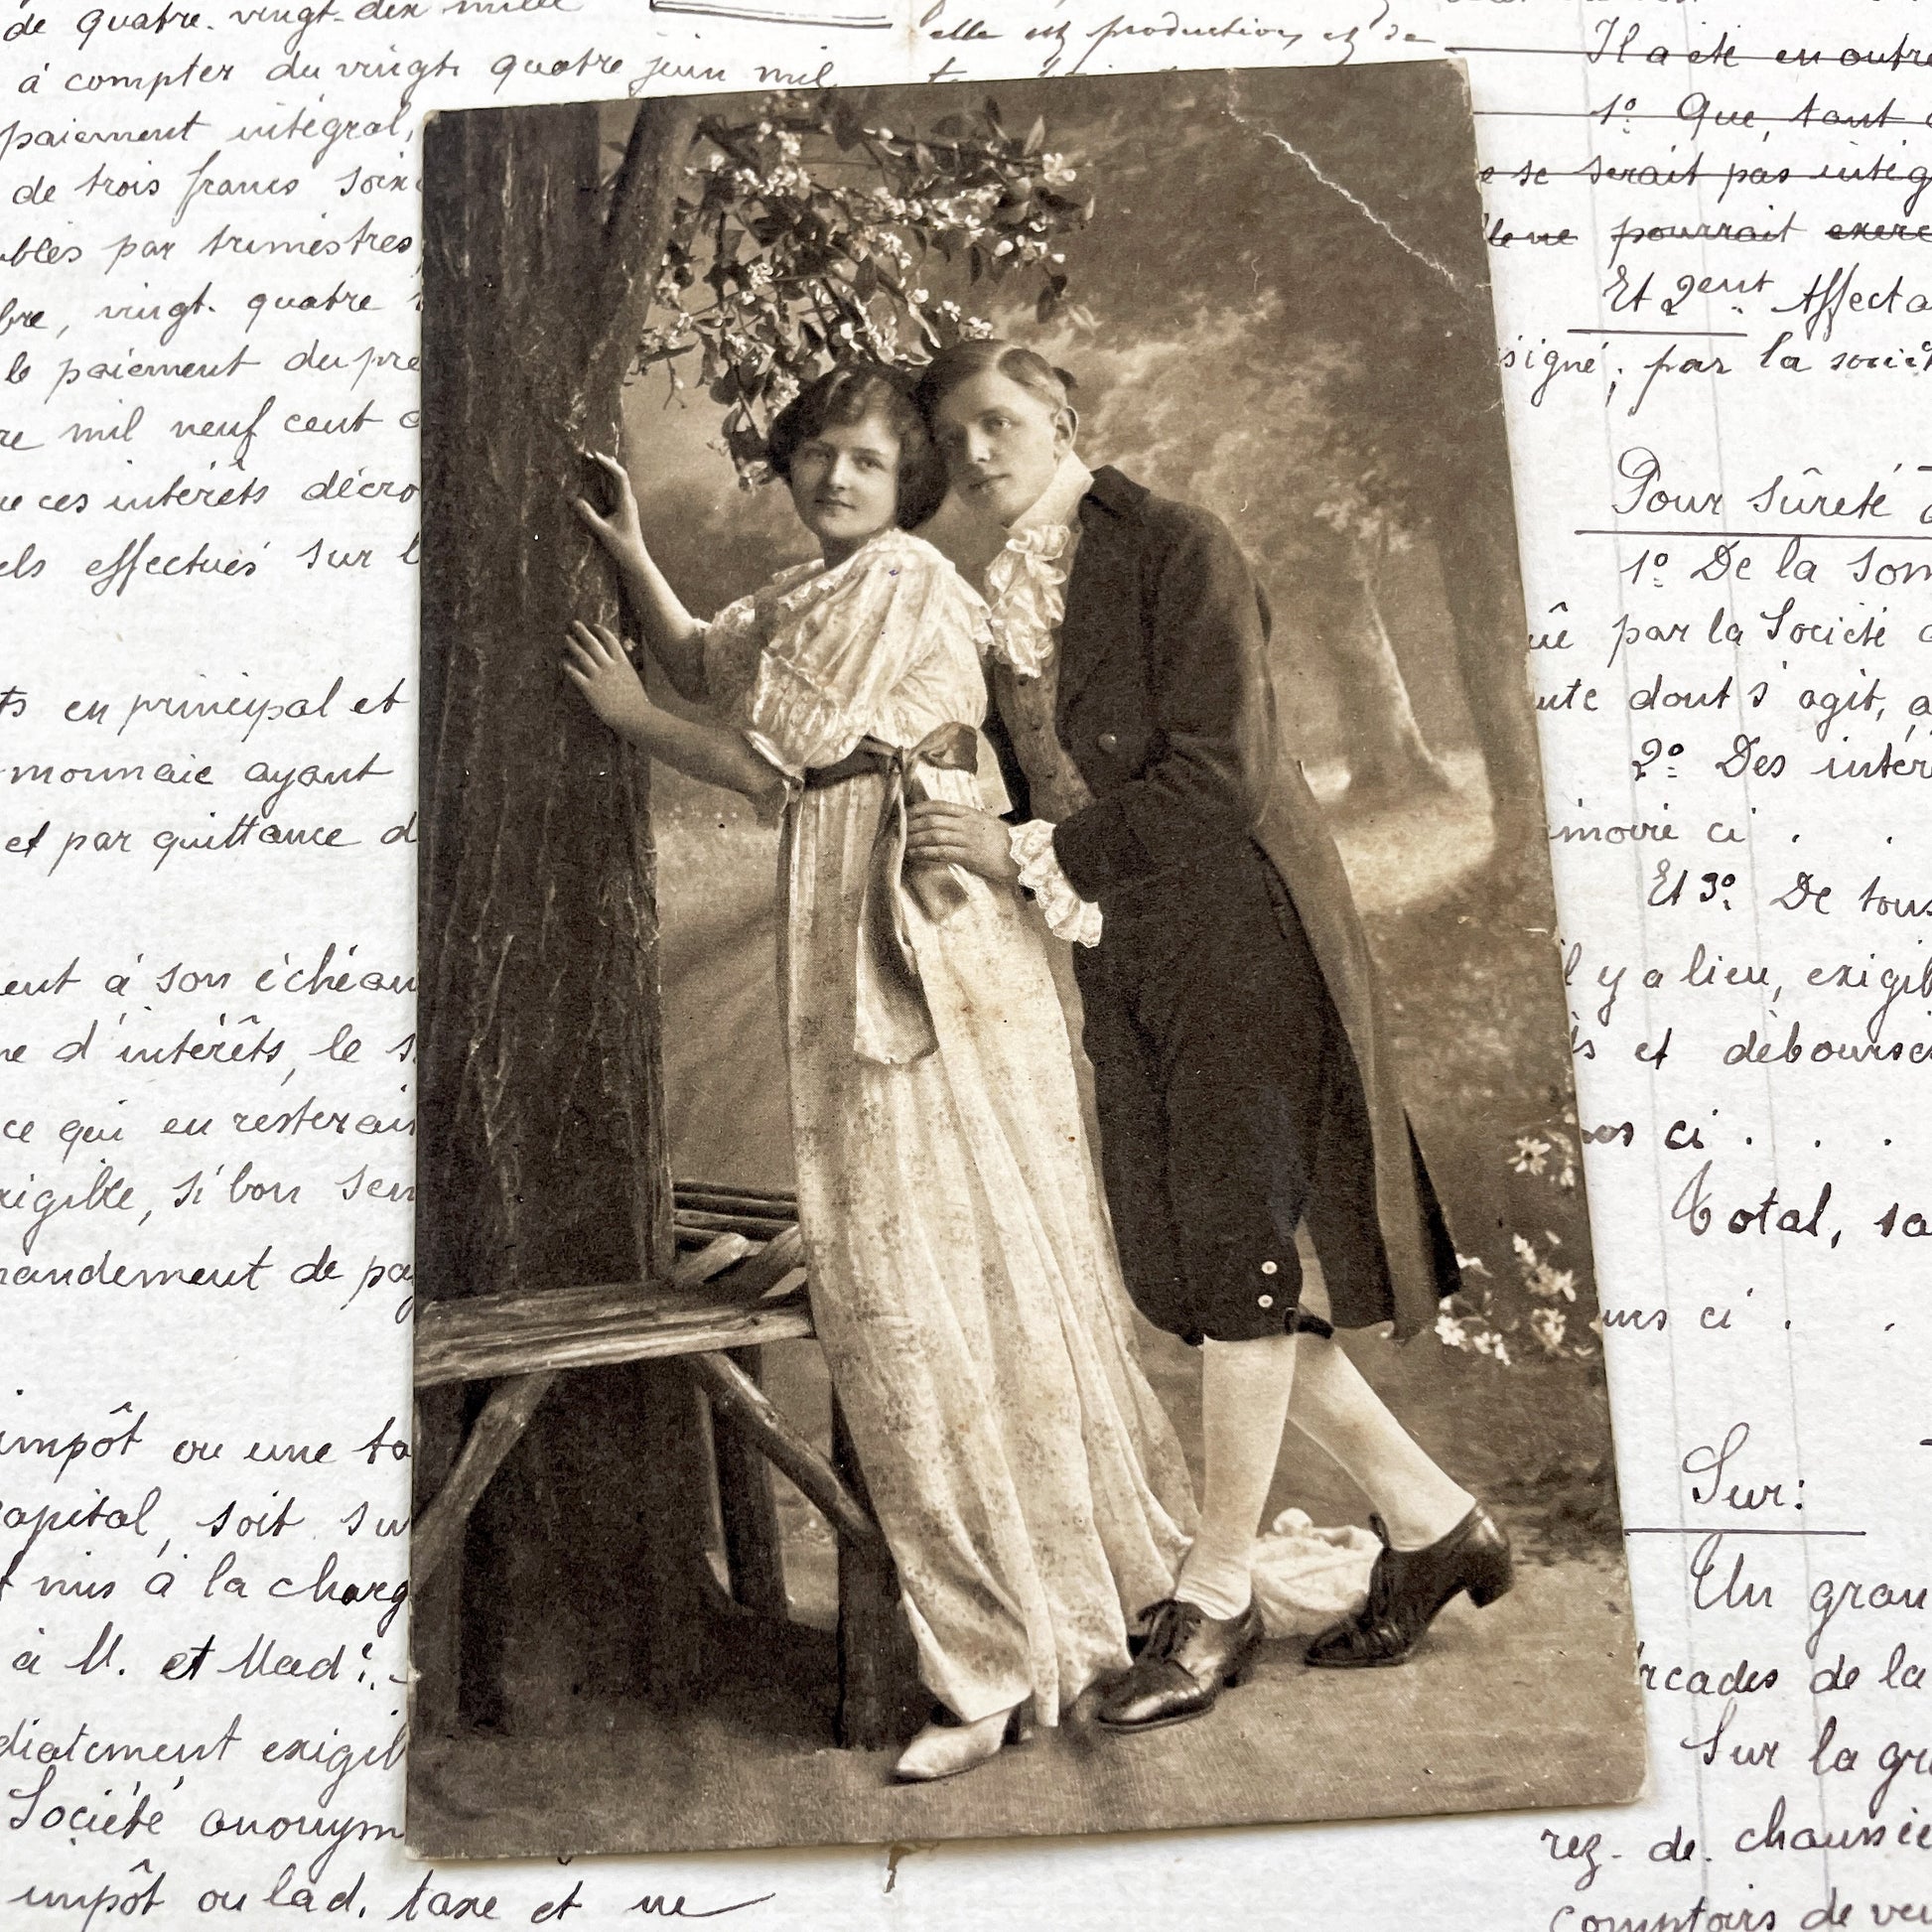 de quatre. vingt-dix mille
à compter du vingt quatre juin mil
paiement intégral,
de trois francs soix
ables par trimestres
bre, vingt. quatre
le paiement du pre
re mil neuf cent
ue ces intérêts décro
els effectués sur l
ts en principal et
monnaie ayant
et par quittance d
ent à son échéan
ne d'intérêts, le s
ce qui en resterai
xigible, si bon sem
mandement de pa
impôt ou une ta
capital, soit su
t mis à la charg
à M. et Mad
diatement exigib
Société anonym
impôt ou lad. taxe et ne
elle est production, et de
Il a été en outre
1º Que, tant
e se serait pas intég
pourrait exerc
Et 2ent. Affecta
signé, par la sociét
Pour sûreté
1º De la som
par la Société
ute dont s'agit,
2º Des intér
moire ci . .
Et 3º. De tous
il y a lieu, exigib
s et débourse
ci . . .
Total, sa
ci . .
Sur:
Un gran
rcades de la
Sur la gr
rez-de-chaussée
comptoirs de ve